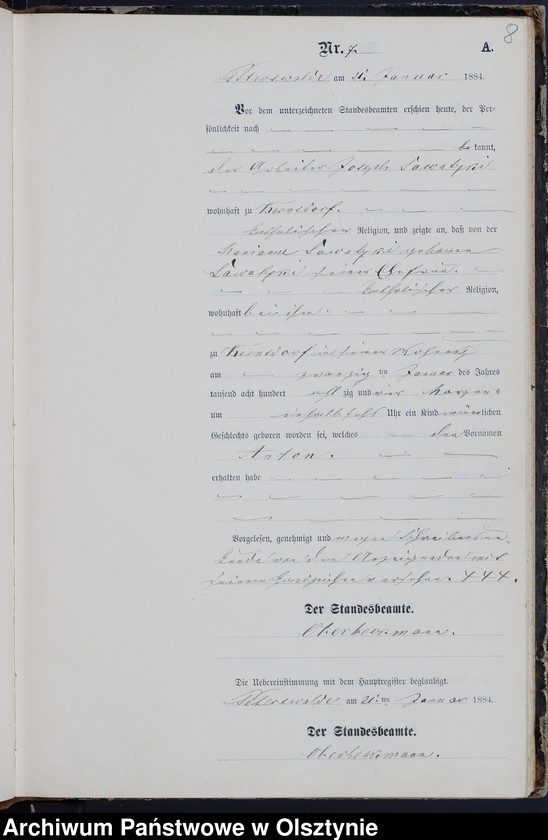 8
Nr. 7. A.
Peterswalde am 21. Januar 1884.
Vor dem unterzeichneten Standesbeamten erschien heute, der Per-
sönlichkeit nach
be kannt,
der Arbeiter Joseph Sawatzki
wohnhaft zu Thurndorf.
katholischer Religion, und zeigte an, daß von der
Mariane Sawatzki geborene
Sawatzki seiner Ehefrau.
katholischer Religion,
wohnhaft bei ihm
zu in seiner Wohnung
am zwanzig ten Januar des Jahres
tausend acht hundert acht zig und vier Morgens
um Uhr ein Kind männlichen
Geschlechts geboren worden sei, welches den Vornamen
Anton.
erhalten habe
Vorgelesen, genehmigt und wegen Schreibensun-
kunde von dem Anzeigenden mit
seinem Handzeichen versehen. +++.
Der Standesbeamte.
Oberbeckmann.
Die Uebereinstimmung mit dem Hauptregister beglaubigt.
Peterswalde am 21. ten Januar 1884.
Der Standesbeamte.
Oberbeckmann.
Archiwum Państwowe w Olsztynie